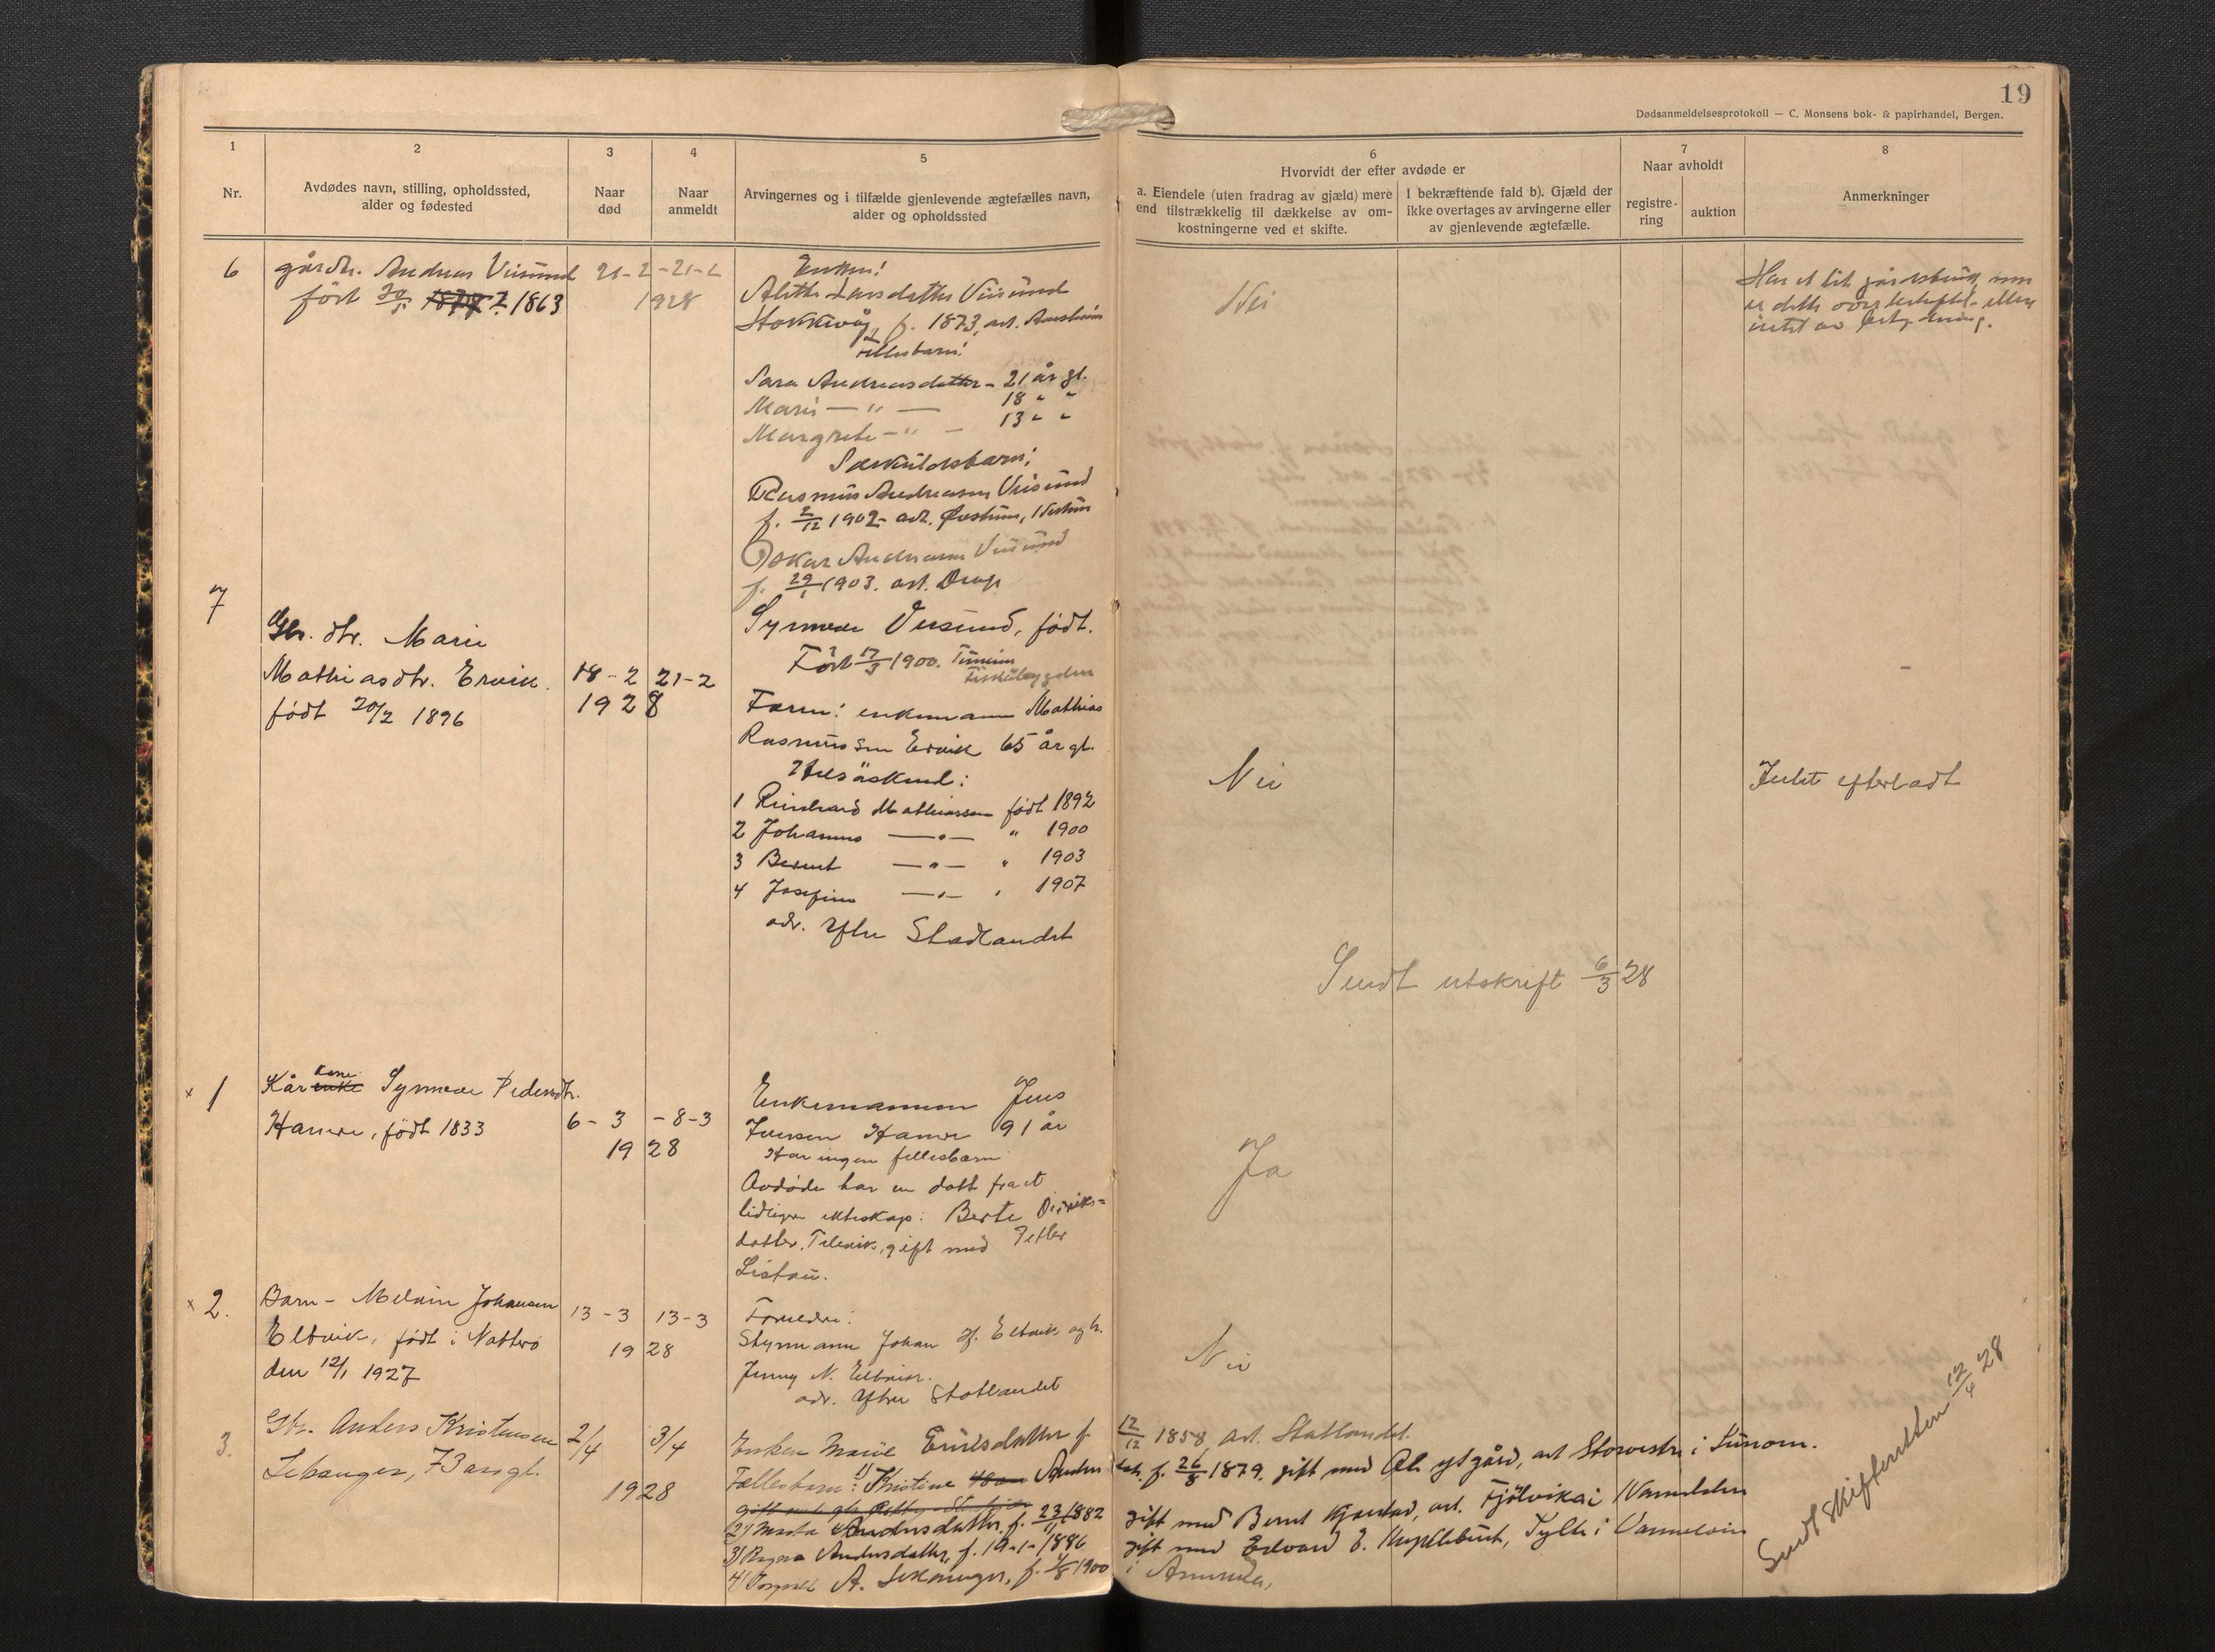 19
Dødsanmeldelsesprotokoll — C. Monsens bok- & papirhandel, Bergen.
1
Nr.
2
Avdødes navn, stilling, opholdssted,
alder og fødested
3
Naar
død
4
Naar
anmeldt
5
Arvingernes og i tilfælde gjenlevende ægtefælles navn,
alder og opholdssted
6
Hvorvidt der efter avdøde er
a. Eiendele (uten fradrag av gjæld) mere
end tilstrækkelig til dækkelse av om-
kostningerne ved et skifte.
I bekræftende fald b). Gjæld der
ikke overtages av arvingerne eller
av gjenlevende ægtefælle.
7
Naar avholdt
registre-
ring
auktion
8
Anmerkninger
6
Andreas Viisund
født 1863
21-2-21-2
1928
Enken:
Viisund
f. 1873, adr.
Fellesbarn:
Sara Andreasdatter - 21 år gl.
Marie — " — 18 " "
Margrete — " — 13 " "
Særkuldsbarn:
Rasmus Andreassen Viisund
f. 2/12 1902 - adr.
Oskar Andreassen Viisund
f. 29/1 1903. adr.
Synneve Viisund, født.
Født 17/3 1900.
Nei
Har et lit gårdsbruk, men
er dette
intet av betydning.
7
Gbr. dtr. Marie
Mathiasdtr. Ervik.
født 20/2 1896
18-2 21-2
1928
Faren: enkemann Mathias
Rasmussen Ervik 65 år gl.
Helsøskend:
1 Reinhard Mathiassen født 1892
2 Johannes — " — " 1900
3 Bernt — " — " 1903
4 Josefine — " — " 1907
adr. Ytre Stadlandet
Nei
Intet efterladt
Sendt utskrift 6/3 28
x 1
Kår enke kone Synneve Pedersdtr.
Hamre, født 1833
6-3 - 8-3
1928
Enkemannen Jens
Iversen Hamre 91 år
Har ingen fellesbarn
Avdøde har en datt fra et
tidligere ekteskap: Berte Diriks=
datter, gift med Petter
Listau.
Ja
x 2.
Barn - Melvin Johansen
Eltvik, født i
den 12/1 1927
13-3 13-3
1928
Foreldre:
Styrmann Johan H. Eltvik og h.
Jenny N. Eltvik.
adr. Ytre Statlandet
Nei
3.
Gbr. Anders Kristensen
Lekanger, 73 års gl.
2/4 3/4
1928
Enken Marie Eriksdatter f. 12/12 1858, adr. Statlandet.
Fællesbarn: 1) Kristine Anders datr. f. 26/8 1879, gift med Ytgård, adr. i
2) Marta Andersdatter. f. 23/11 1882 gift med Bernt adr. i
3) Andersdatter, f. 19-1-1886 gift med Edvard i
4) A. Lekanger, f. 4/8 1900 i Amerika,
Sendt skifteretten 12/4 28